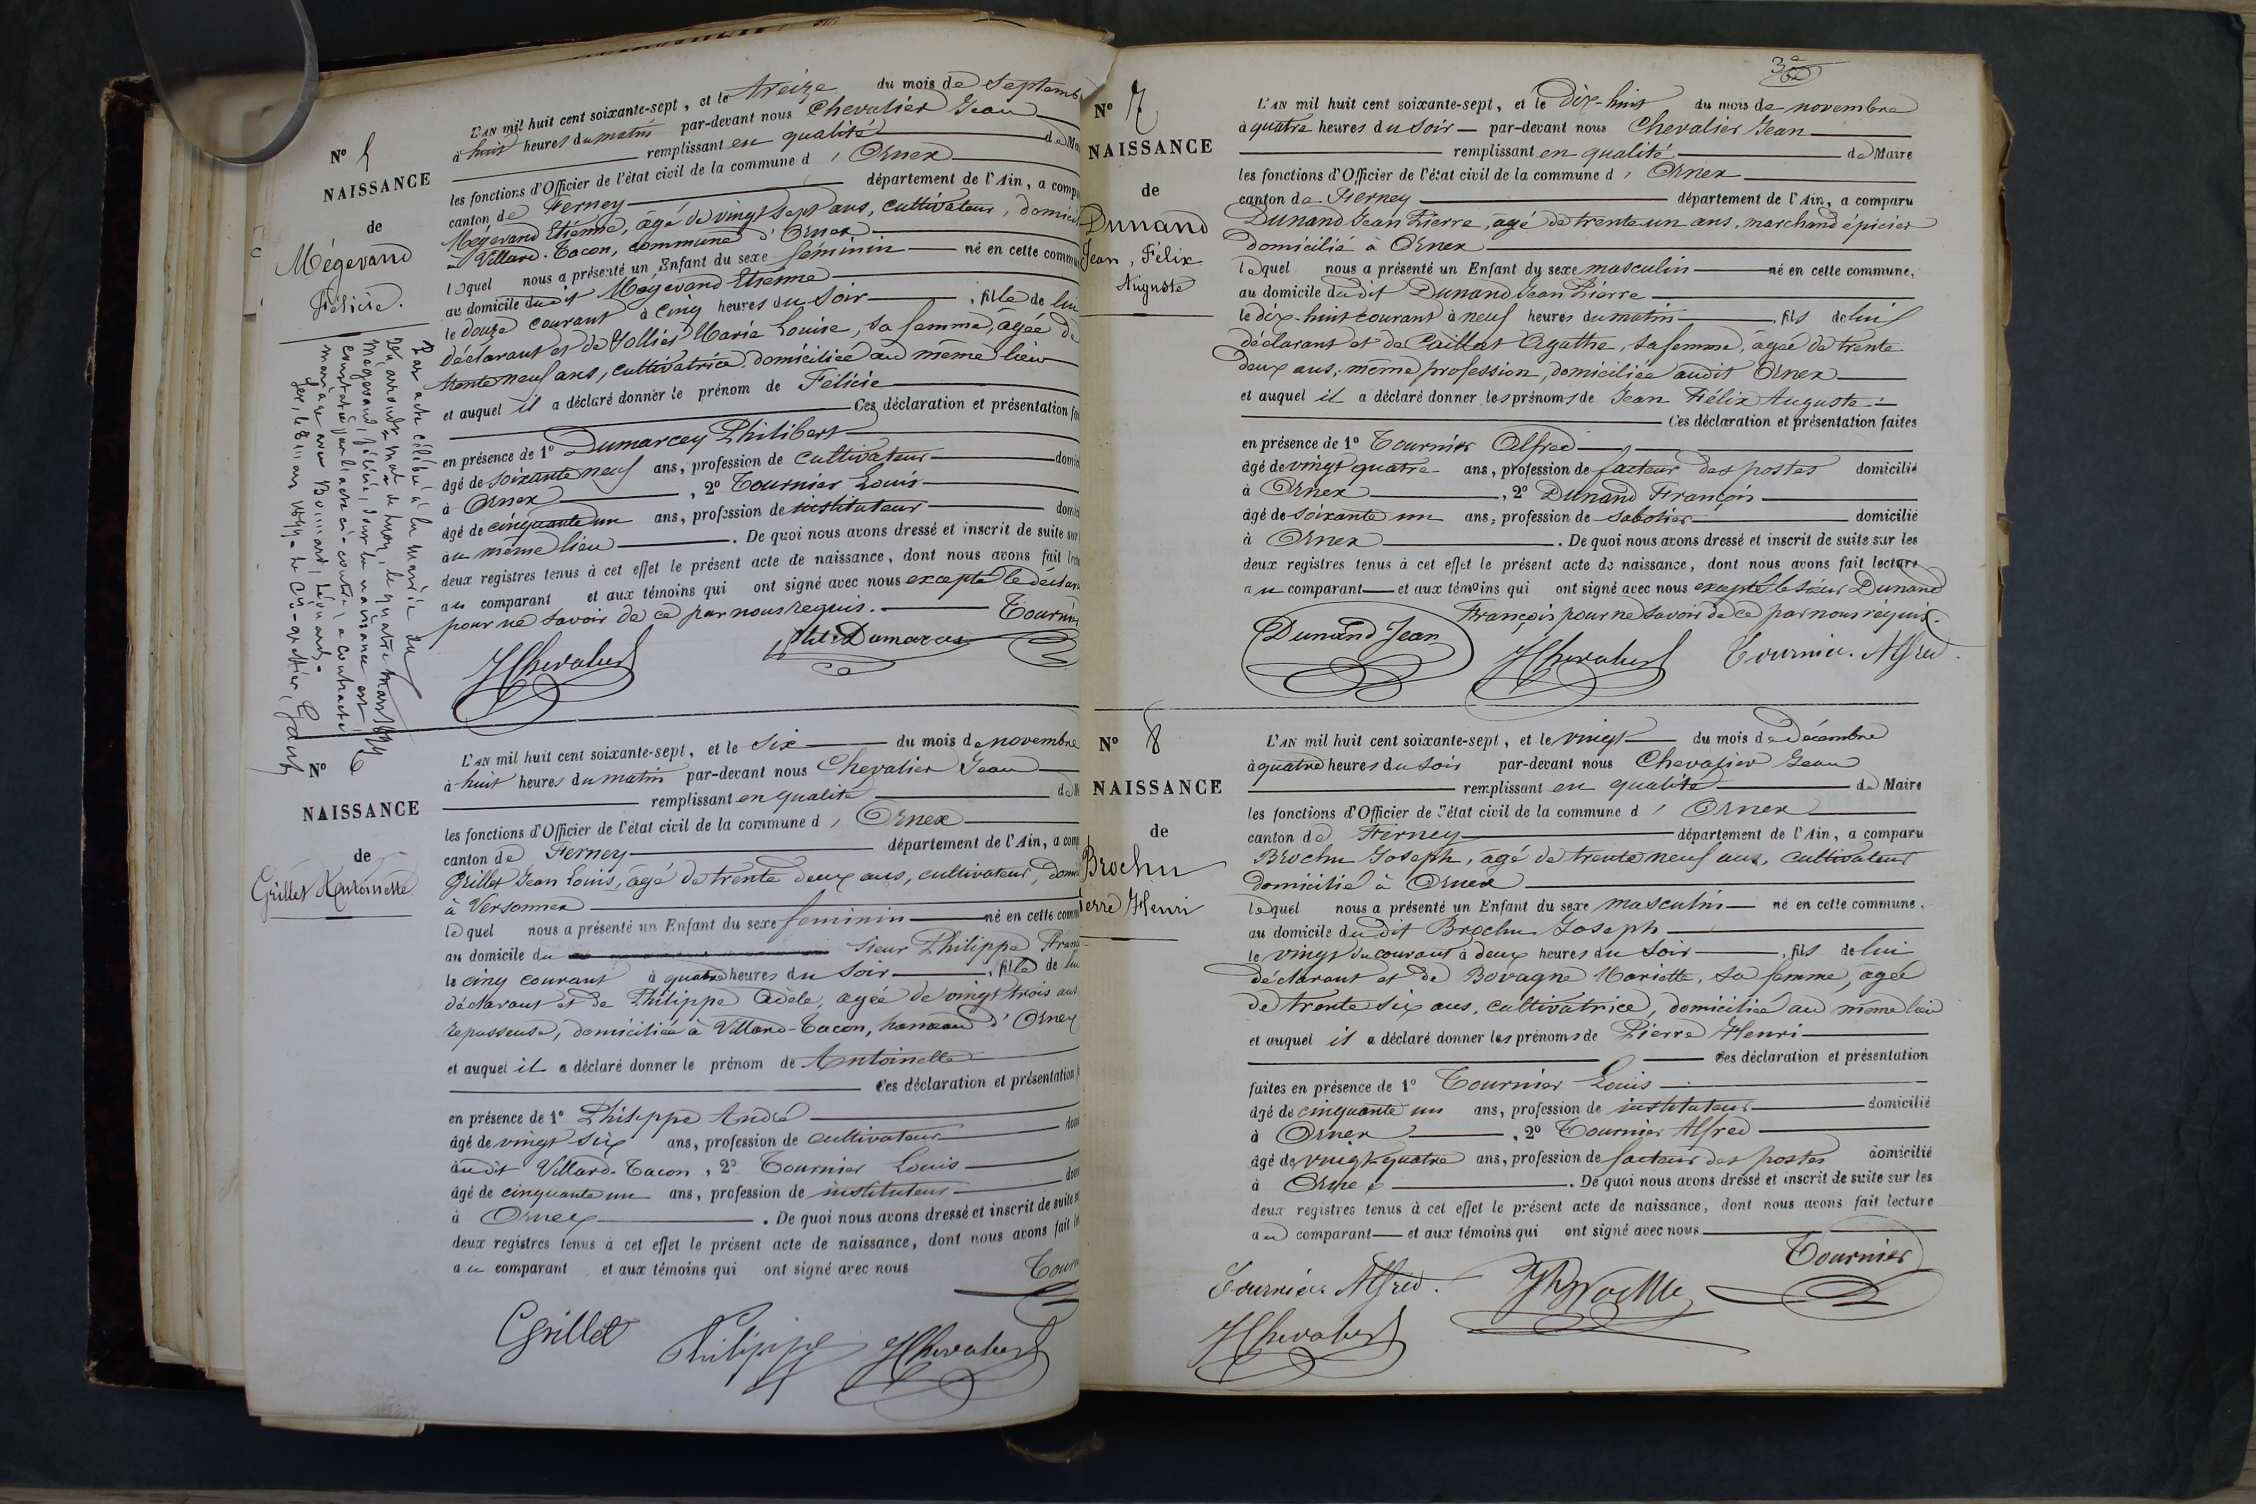 N° 5
NAISSANCE
de
Mégevand
Félicie.
L'AN mil huit cent soixante-sept, et le treize du mois de septemb
à huit heures du matin par-devant nous Chevalier Jean
remplissant en qualité de M
les fonctions d'Officier de l'état civil de la commune d' Ornex
canton de Ferney département de l'Ain, a compa
Mégevand Etienne, âgé de vingt sept ans, cultivateur, domicil
à Villard-Tacon, commune d'Ornex
lequel nous a présenté un Enfant du sexe féminin né en cette commun
au domicile du dit Mégevand Etienne
le douze courant à cinq heures du soir, fille de lui
déclarant et de Vollier Marie Louise, sa femme, âgée de
trente neuf ans, cultivatrice domiciliée au même lieu
et auquel il a déclaré donner le prénom de Félicie
Ces déclaration et présentation fai
en présence de 1° Dumarcey Philibert
âgé de soixante neuf ans, profession de cultivateur domici
à Ornex, 2° Tournier Louis
âgé de cinquante un ans, profession de instituteur domici
au même lieu. De quoi nous avons dressé et inscrit de suite sur
deux registres tenus à cet effet le présent acte de naissance, dont nous avons fait lectu
au comparant et aux témoins qui ont signé avec nous excepté le déclara
pour ne savoir de ce par nous requis. Tournier
JChevalier Phil. Dumarcey
Par acte célébré à la mairie du
arrondt de Lyon, le quatre mars 1894
Mégevand, félicie, dont la naissance est
constatée par l'acte ci-contre, a contracté
mariage avec Bonnard, Léonard.
Gex, le 8 mars 1894. Le Cis-greffier,
N° 6
NAISSANCE
de
Grillet Antoinette
L'AN mil huit cent soixante-sept, et le six du mois de novembre
à huit heures du matin par-devant nous Chevalier Jean
remplissant en qualité de M
les fonctions d'Officier de l'état civil de la commune d' Ornex
canton de Ferney département de l'Ain, a comp
Grillet Jean Louis, âgé de trente deux ans, cultivateur, domi
à Versonnex
lequel nous a présenté un Enfant du sexe féminin né en cette comm
au domicile du sieur Philippe Fran
le cinq courant à quatre heures du soir, fille de lui
déclarant et de Philippe Adèle, agée de vingt trois ans
repasseuse, domiciliée à Villard-Tacon, hameau d'Ornex
et auquel il a déclaré donner le prénom de Antoinette
Ces déclaration et présentation f
en présence de 1° Philippe André
âgé de vingt six ans, profession de cultivateur domi
audit Villard-Tacon, 2° Tournier Louis
âgé de cinquante un ans, profession de instituteur dom
à Ornex. De quoi nous avons dressé et inscrit de suite su
deux registres tenus à cet effet le présent acte de naissance, dont nous avons fait le
au comparant et aux témoins qui ont signé avec nous Tourn
Grillet Philippe JChevalier
3e
N° 7
NAISSANCE
de
Dunand
Jean, Félix
Auguste
L'AN mil huit cent soixante-sept, et le dix-huit du mois de novembre
à quatre heures du soir par-devant nous Chevalier Jean
remplissant en qualité de Maire
les fonctions d'Officier de l'état civil de la commune d' Ornex
canton de Ferney département de l'Ain, a comparu
Dunand Jean Pierre, âgé de trente un ans, marchand épicier
domicilié à Ornex
lequel nous a présenté un Enfant du sexe masculin né en cette commune,
au domicile du dit Dunand Jean Pierre
le dix-huit courant à neuf heures du matin, fils de lui
déclarant et de Caillat Agathe, sa femme, âgée de trente
deux ans, même profession, domiciliée audit Ornex
et auquel il a déclaré donner les prénoms de Jean Félix Auguste.
Ces déclaration et présentation faites
en présence de 1° Tournier Alfred
âgé de vingt quatre ans, profession de facteur des postes domicilié
à Ornex, 2° Dunand François
âgé de soixante un ans, profession de sabotier domicilié
à Ornex. De quoi nous avons dressé et inscrit de suite sur les
deux registres tenus à cet effet le présent acte de naissance, dont nous avons fait lecture
au comparant et aux témoins qui ont signé avec nous excepté le sieur Dunand
François pour ne savoir de ce par nous requis.
Dunand Jean JChevalier Tournier. Alfred.
N° 8
NAISSANCE
de
Brochu
ierre Henri
L'AN mil huit cent soixante-sept, et le vingt du mois de décembre
à quatre heures du soir par-devant nous Chevalier Jean
remplissant en qualité de Maire
les fonctions d'Officier de l'état civil de la commune d' Ornex
canton de Ferney département de l'Ain, a comparu
Brochu Joseph, âgé de trente neuf ans, cultivateur
domicilié à Ornex
lequel nous a présenté un Enfant du sexe masculin né en cette commune,
au domicile du dit Brochu Joseph
le vingt du courant à deux heures du soir, fils de lui
déclarant et de Bovagne Mariette, sa femme, agée
de trente six ans, cultivatrice, domiciliée au même lieu
et auquel il a déclaré donner les prénoms de Pierre Henri
Ces déclaration et présentation
faites en présence de 1° Tournier Louis
âgé de cinquante un ans, profession de instituteur domicilié
à Ornex, 2° Tournier Alfred
âgé de vingt quatre ans, profession de facteur des postes domicilié
à Ornex. De quoi nous avons dressé et inscrit de suite sur les
deux registres tenus à cet effet le présent acte de naissance, dont nous avons fait lecture
au comparant et aux témoins qui ont signé avec nous
Tournier
Tournier Alfred.
JChevalier